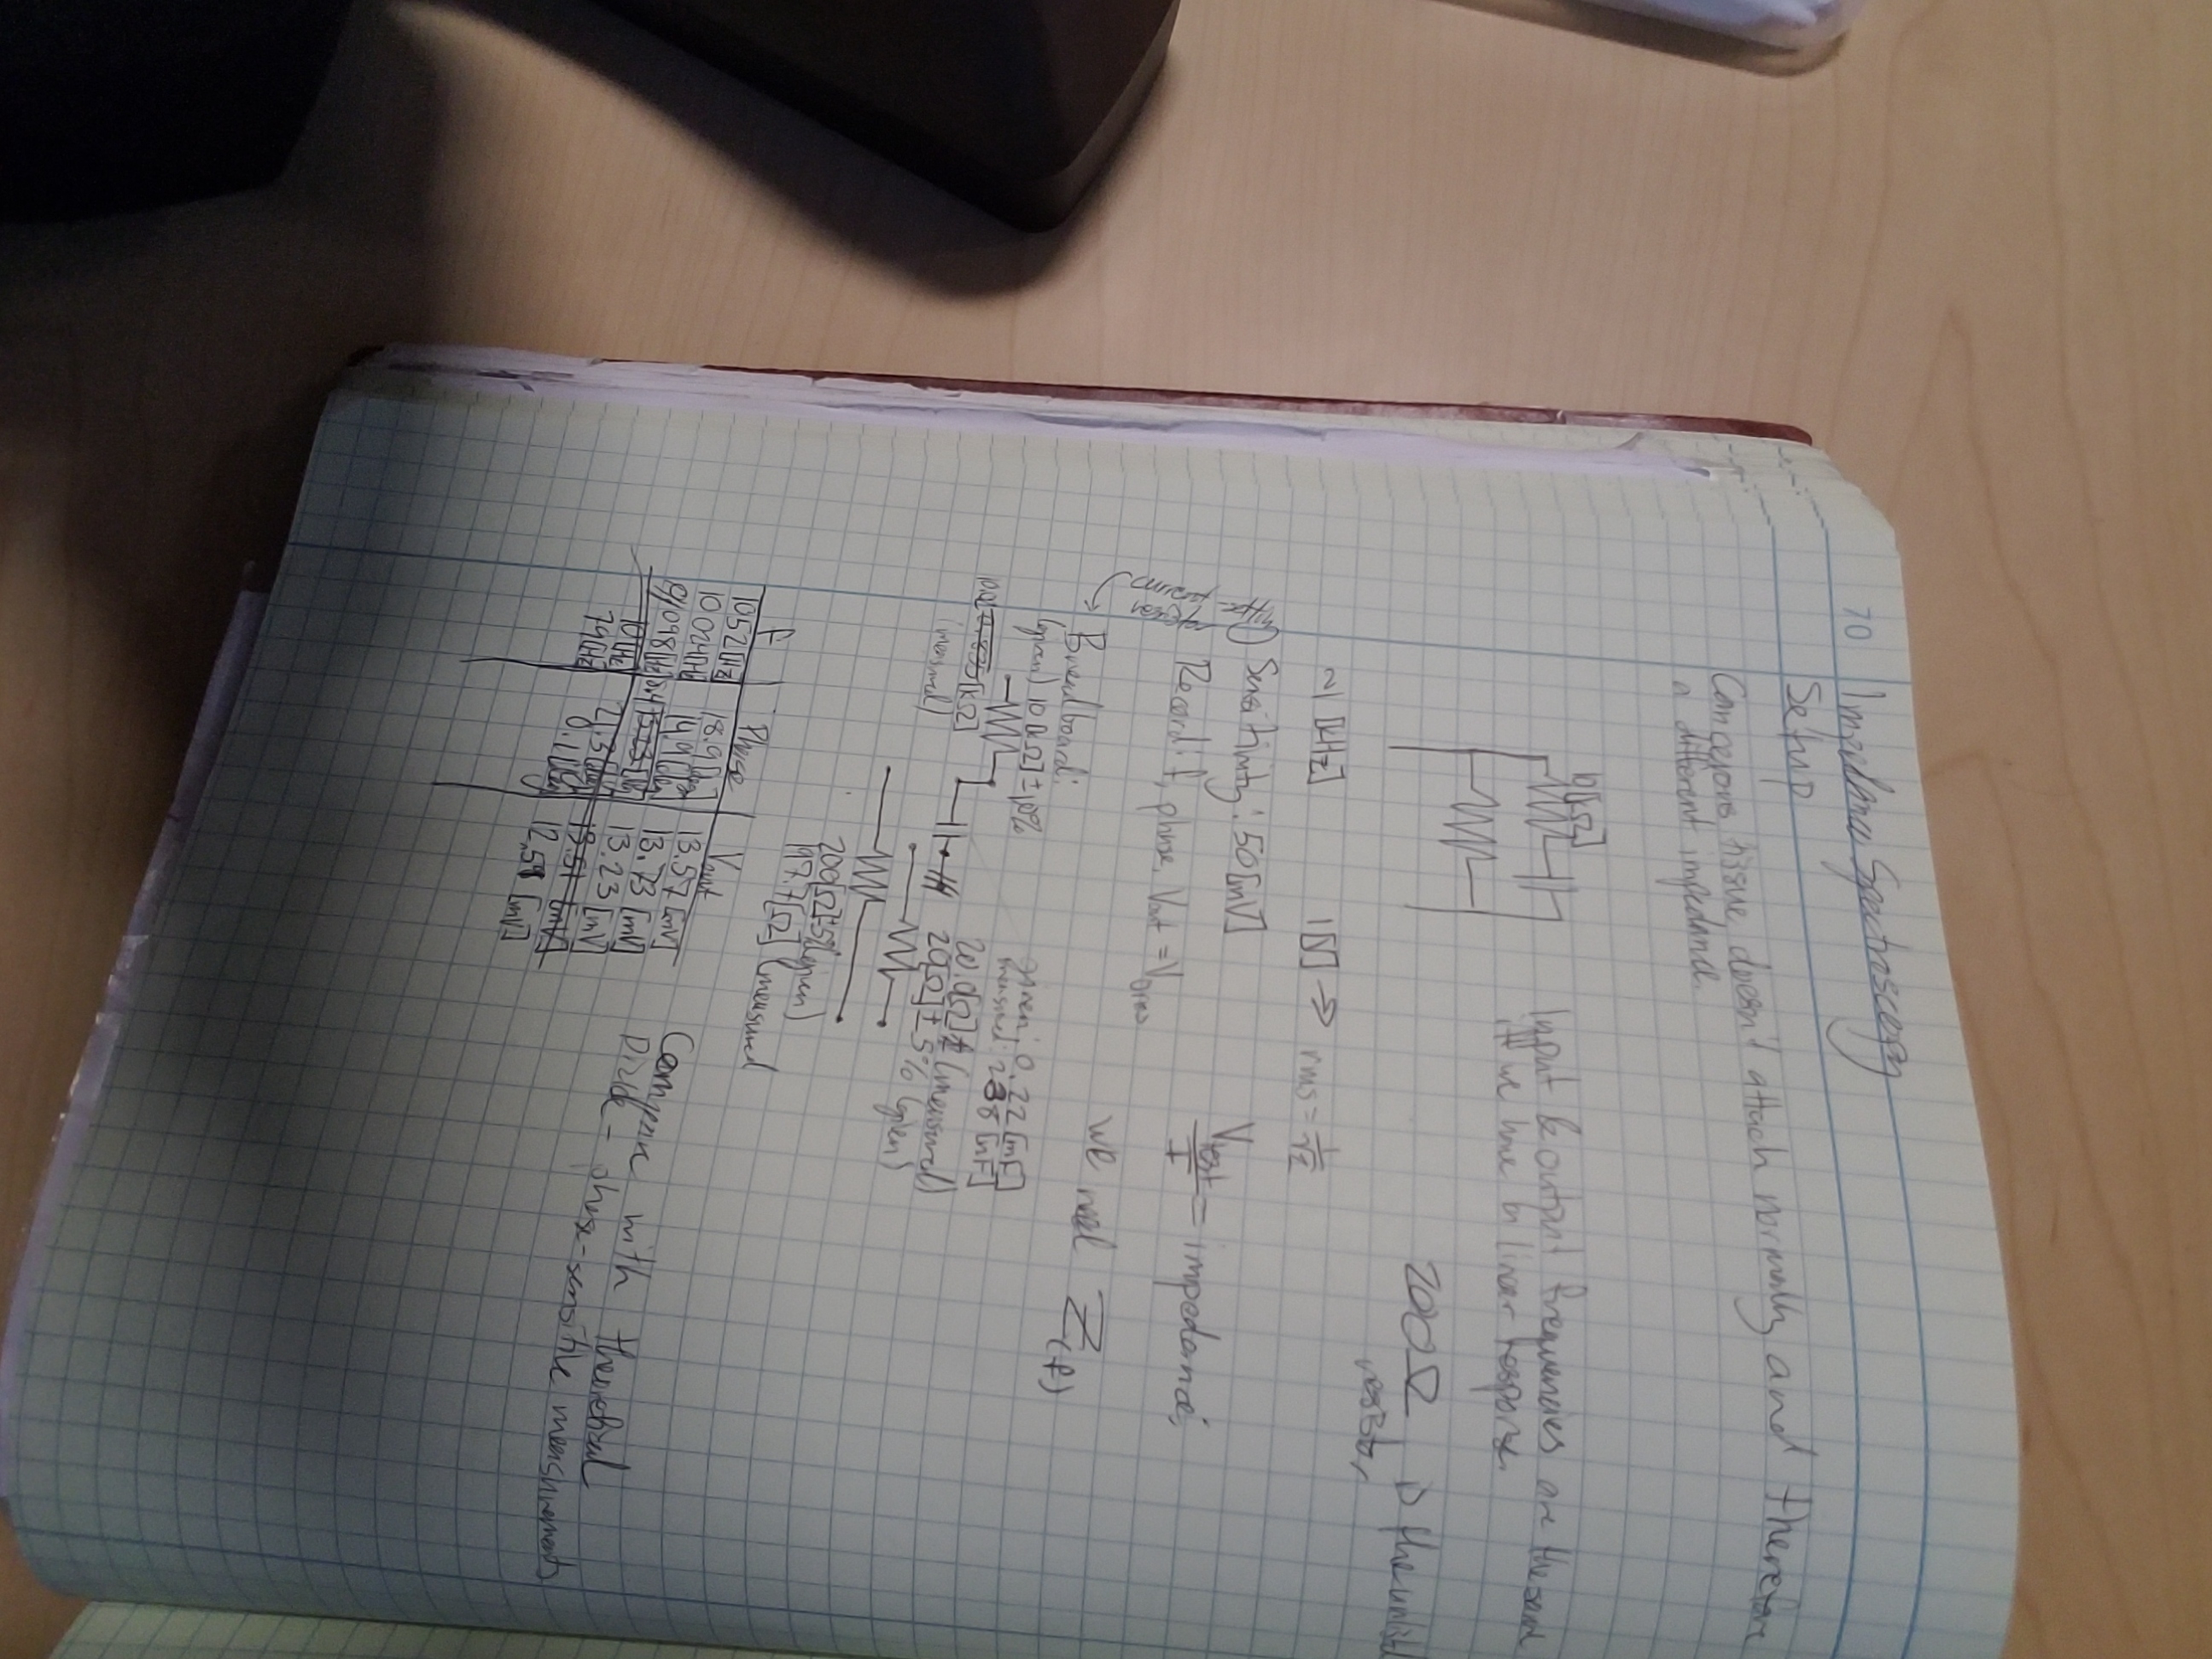 70 Impedance Spectroscopy
Setup
Cancerous tissue doesn't attach normally and therefore
a different impedance.
10[kΩ]
Input & output frequencies are the same
iff we have a linear response.
200Ω is the unlisted
resistor
~1 [kHz] 1[V] ⇒ rms = 1/√2
Sensitivity: 50[mV]
Vtest/I = impedance,
Record: f, phase, Vout =
current setting
resistor
we need Z(f)
Breadboard:
(given) 10[kΩ] ± 10%
given: 0.22 [mF]
measured: 238 [nF]
[kΩ]
(measured)
20.0[Ω] (measured)
20[Ω] ± 5% (given)
200[Ω] ± 5% (given)
197.7[Ω] (measured
f Phase Vout
1052[Hz] 18.9[deg] 13.57 [mV]
10024[Hz] 14.9[deg] 13.73 [mV]
098[Hz] 13.23 [mV]
10[Hz] 21.3[deg] 13.51 [mV]
79[Hz] 0.1[deg] 12.51 [mV]
Compare with theoretical
Divide - phase-sensitive measurements